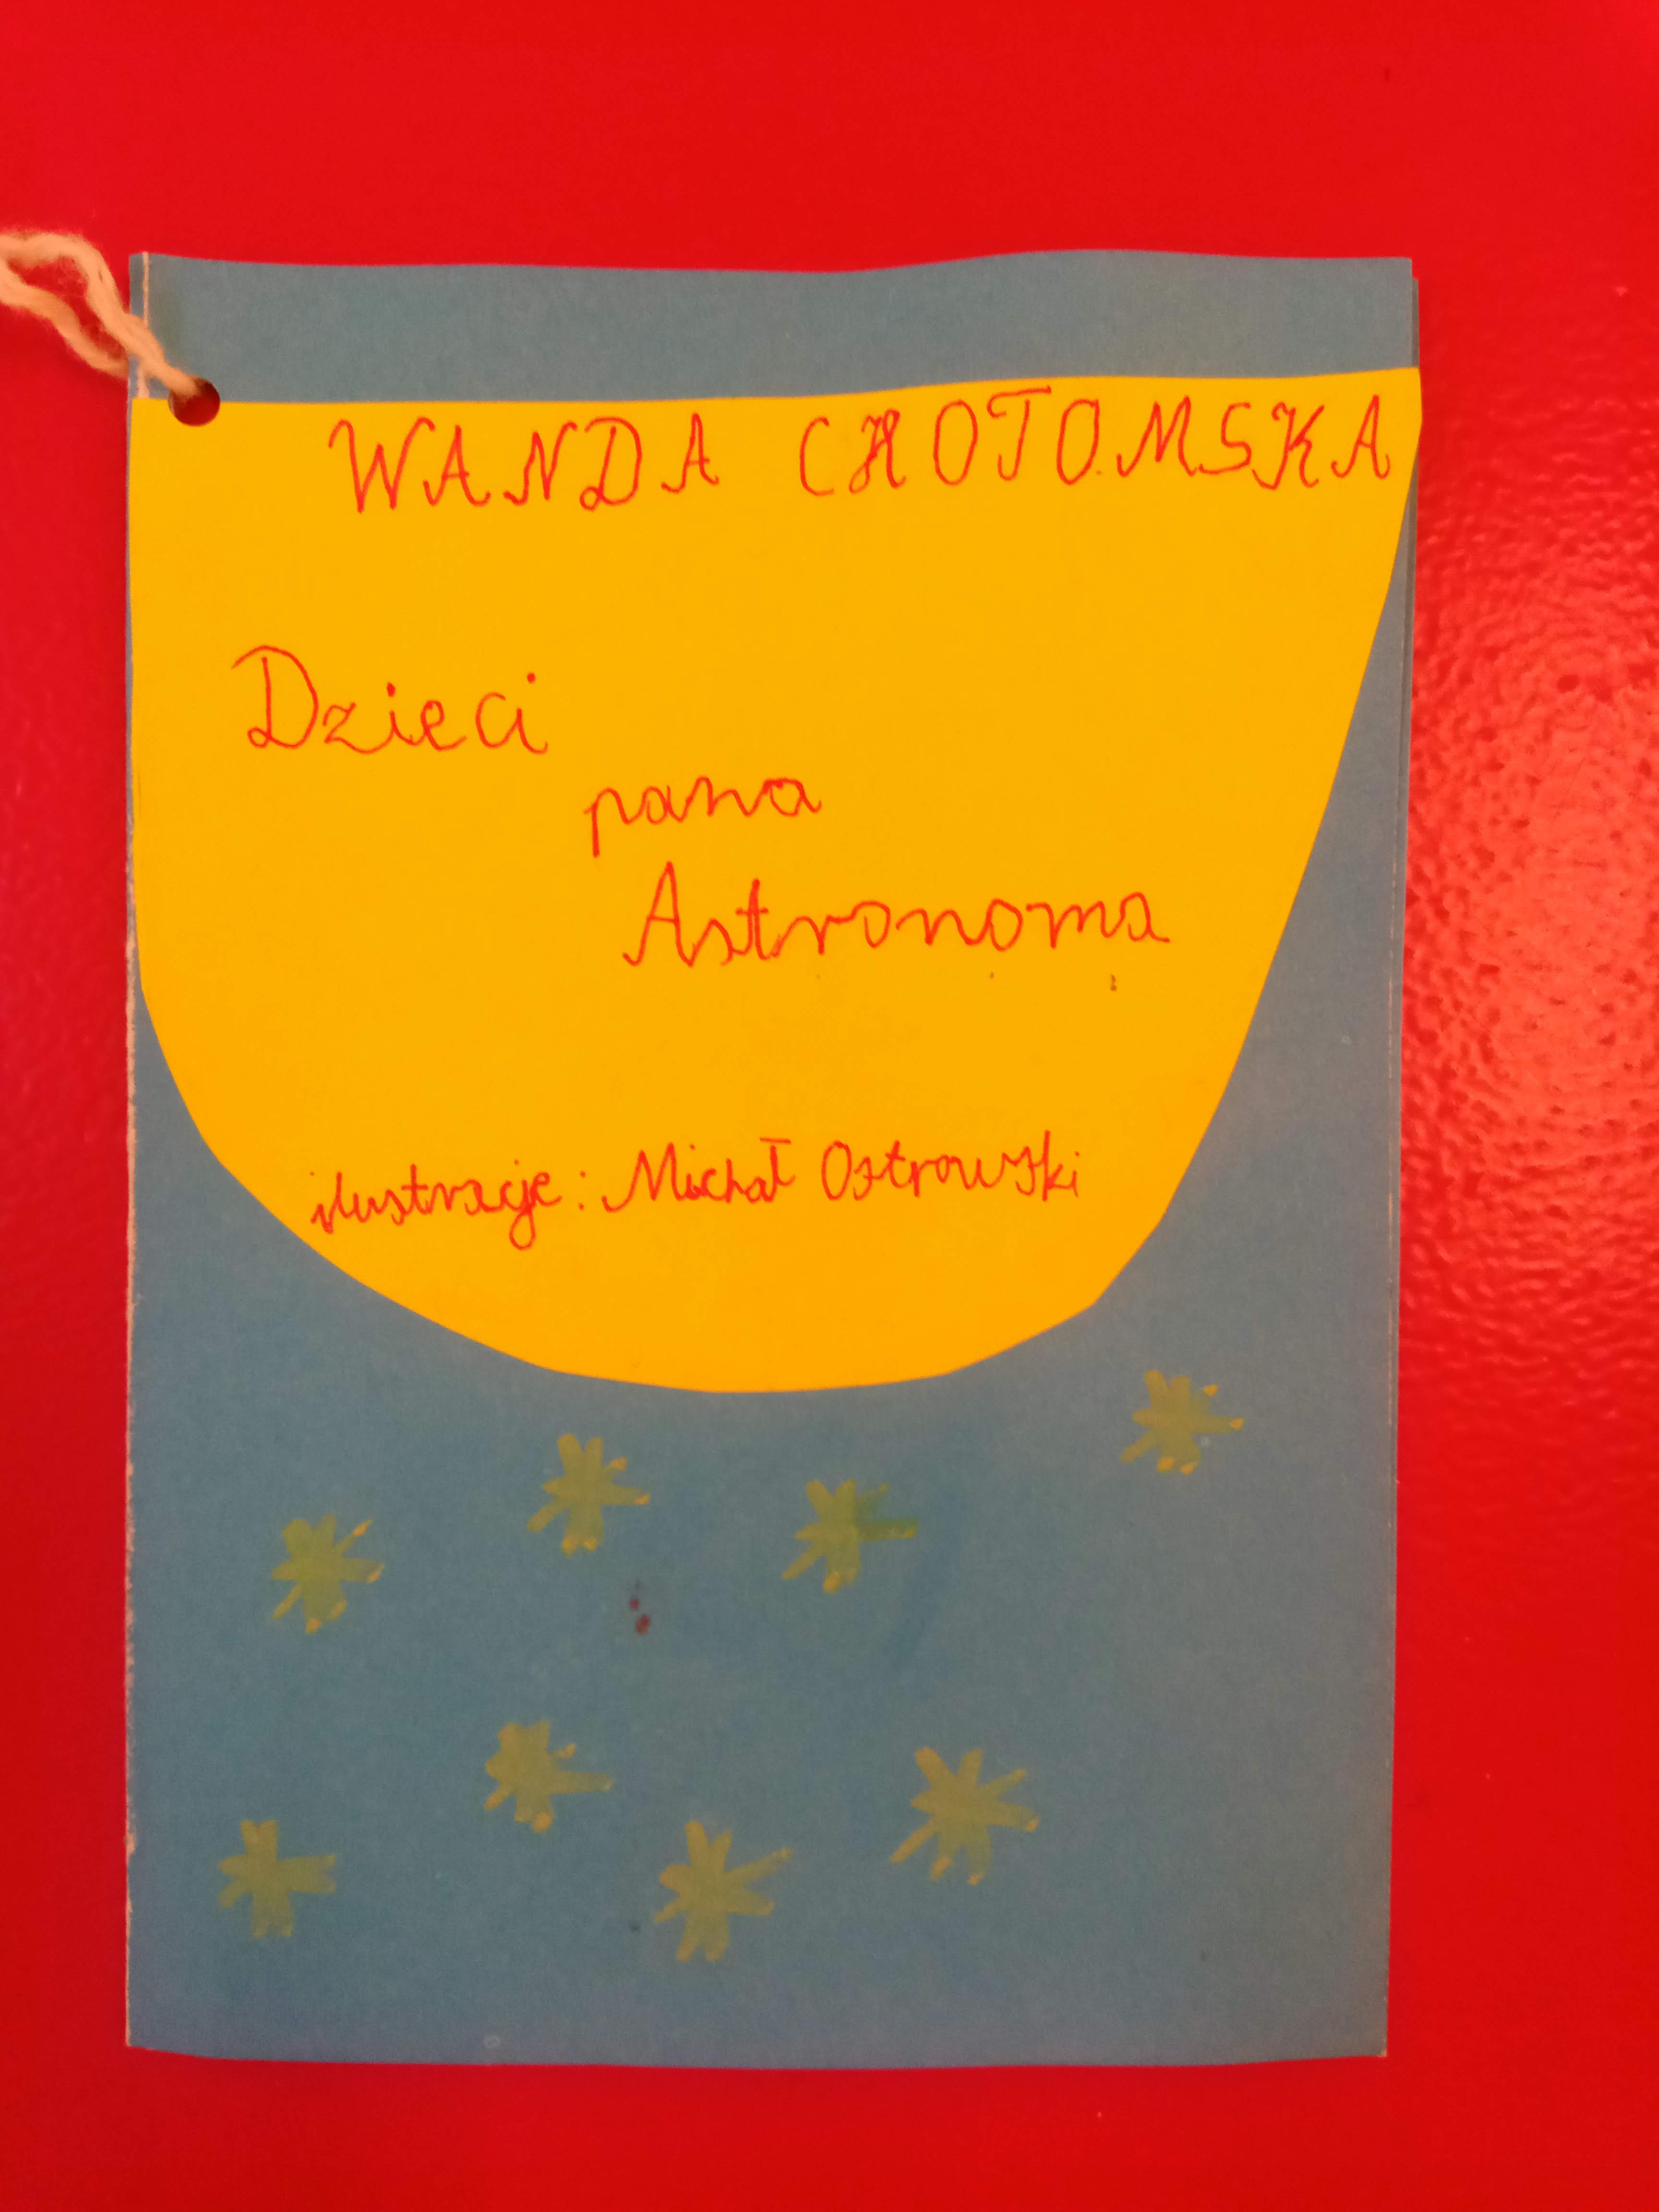 WANDA CHOTOMSKA
Dzieci
pana
Astronoma
ilustracje: Michał Ostrowski